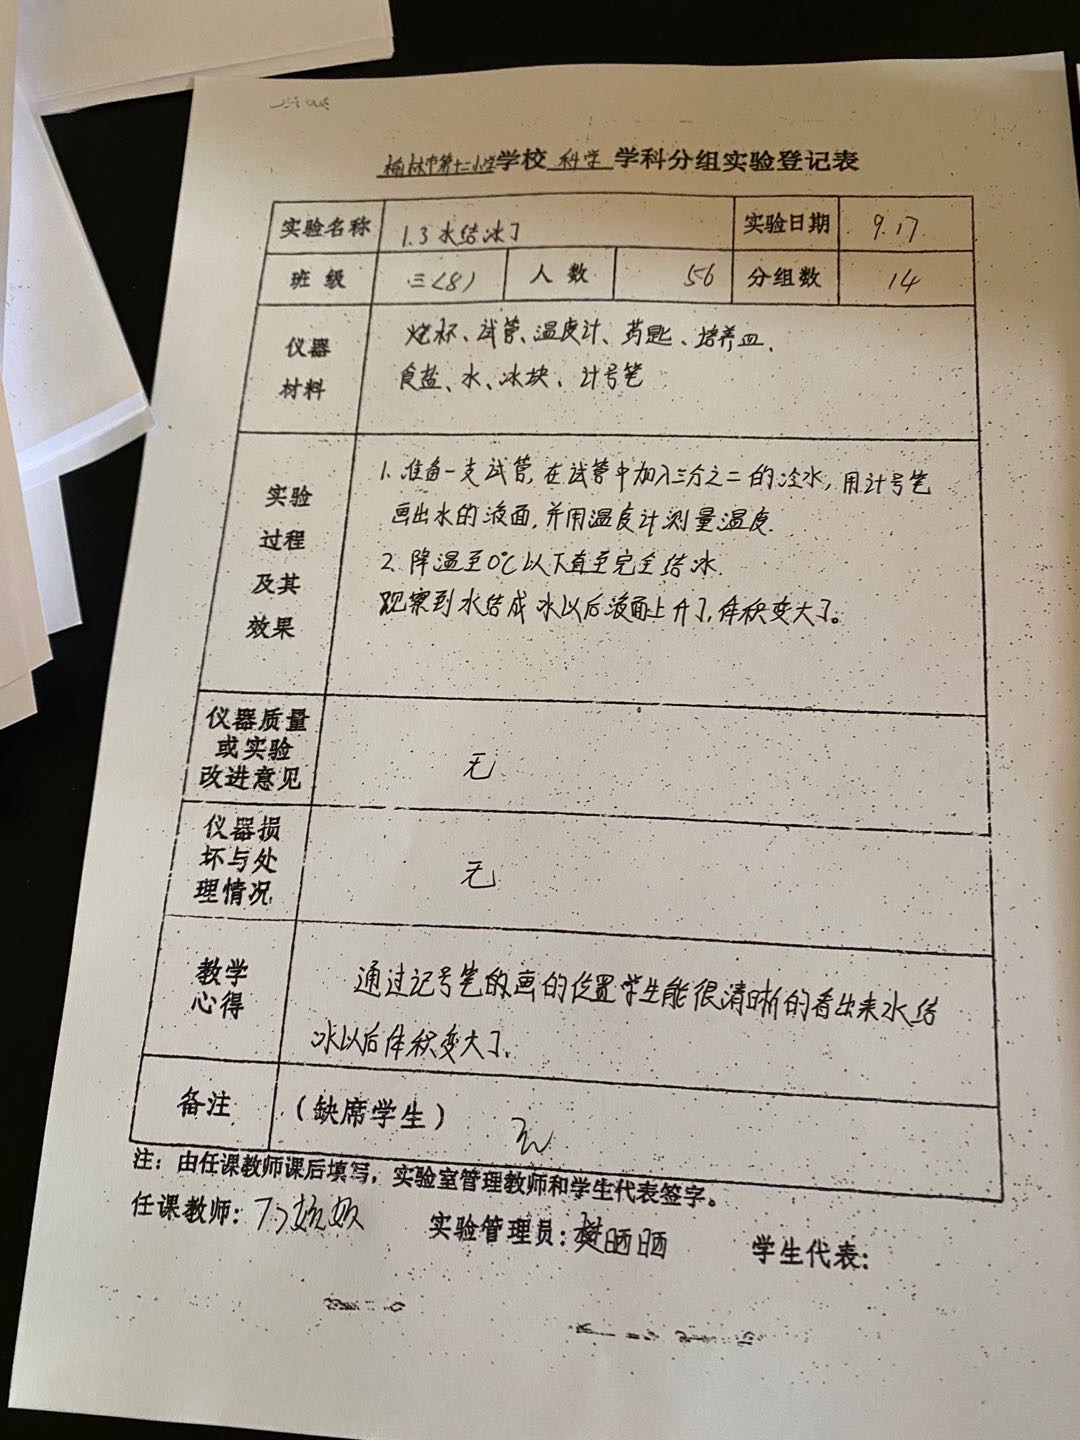 榆林市第十二小学学校 科学 学科分组实验登记表
实验名称 1.3 水结冰了 实验日期 9.17
班级 三(8) 人数 56 分组数 14
仪器材料
烧杯、试管、温度计、药匙、培养皿、
食盐、水、冰块、计号笔
实验过程及其效果
1. 准备一支试管,在试管中加入三分之二的冷水,用计号笔
画出水的液面,并用温度计测量温度.
2. 降温至0℃以下直至完全结冰.
观察到水结成冰以后液面上升了,体积变大了。
仪器质量
或实验
改进意见
无
仪器损
坏与处
理情况
无
教学
心得
通过记号笔的画的位置学生能很清晰的看出来水结
冰以后体积变大了.
备注 (缺席学生) 无
注:由任课教师课后填写,实验室管理教师和学生代表签字。
任课教师: 实验管理员:樊晒晒 学生代表: